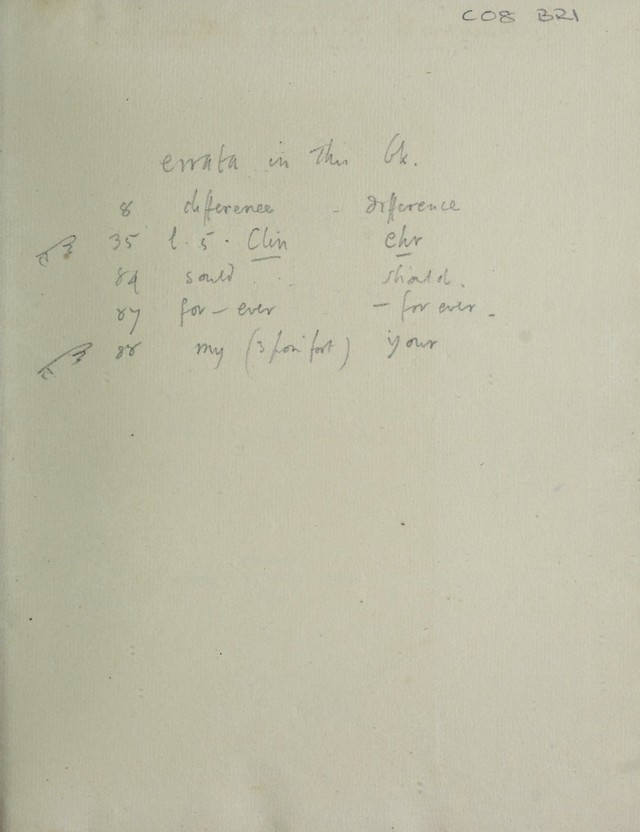 C08 BR1
errata in this bk.
8 differenee - difference
35 l. 5. Clin Chr
84 sould . . should.
87 for - ever - for ever.
88 my (3 from foot) your